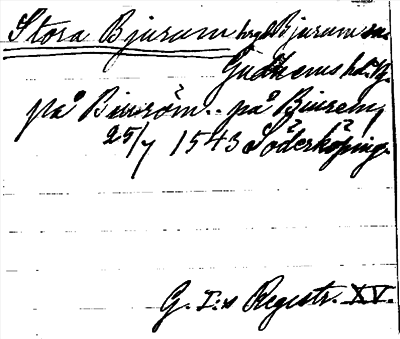 Stora Bjurum hrgd Bjurum sn
Gudhems hd. Vg.
på Biuröm.. på Biurem,
25/7 1543 Söderköping.
G. I:s Registr. XV.